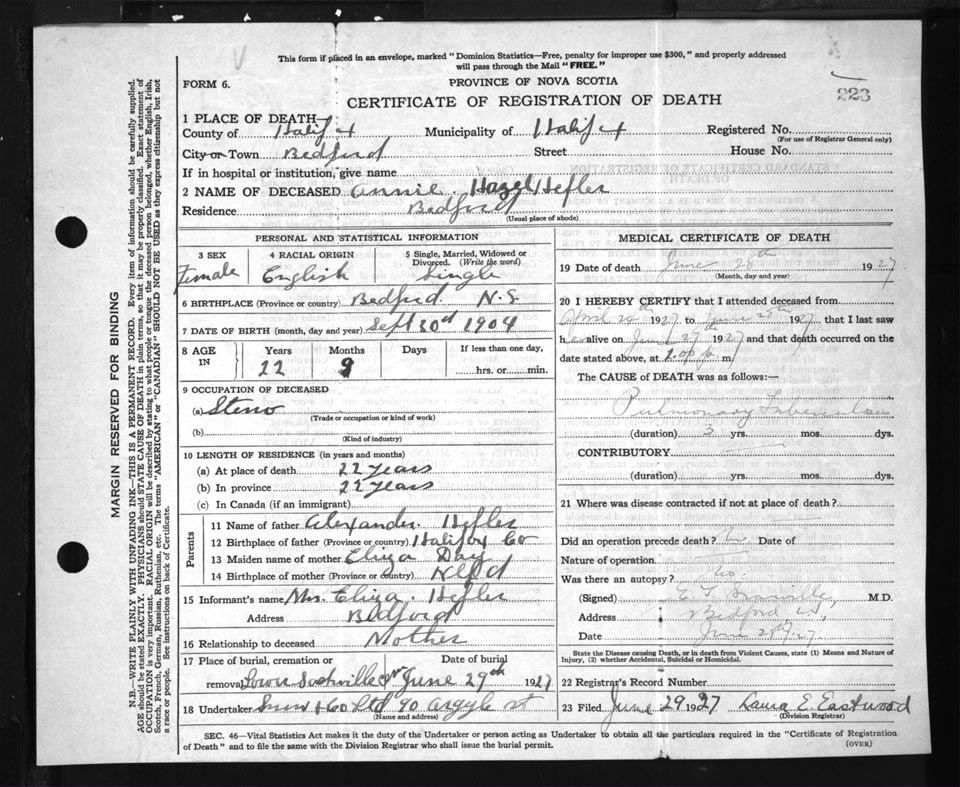 This form if placed in an envelope, marked "Dominion Statistics—Free, penalty for improper use $300," and properly addressed
will pass through the Mail "FREE."
FORM 6.
PROVINCE OF NOVA SCOTIA
223
CERTIFICATE OF REGISTRATION OF DEATH
1 PLACE OF DEATH—
County of Halifx Municipality of Halifx Registered No.
(For use of Registrar General only)
City or Town Bedford Street House No.
If in hospital or institution, give name
2 NAME OF DECEASED Annie Hazel Hefler
Residence Bedford
(Usual place of abode)
PERSONAL AND STATISTICAL INFORMATION
3 SEX Female
4 RACIAL ORIGIN English
5 Single, Married, Widowed or
Divorced. (Write the word)
Single
6 BIRTHPLACE (Province or country) Bedford. N.S.
7 DATE OF BIRTH (month, day and year) Sept 30th 1904
8 AGE IN
Years Months Days If less than one day,
22 9 hrs. or min.
9 OCCUPATION OF DECEASED
(a) Steno
(Trade or occupation or kind of work)
(b)
(Kind of industry)
10 LENGTH OF RESIDENCE (in years and months)
(a) At place of death 22 years
(b) In province 22 years
(c) In Canada (if an immigrant)
Parents
11 Name of father Alexander Hefler
12 Birthplace of father (Province or country) Halifax Co
13 Maiden name of mother Eliza Day
14 Birthplace of mother (Province or country) Nfld
15 Informant's name Mrs. Eliza Hefler
Address Bedford
16 Relationship to deceased Mother
17 Place of burial, cremation or Date of burial
removal Lower Sackville June 29th 1927
18 Undertaker Snow & Co Ltd 90 Argyle st
(Name and address)
MEDICAL CERTIFICATE OF DEATH
19 Date of death June 28th 1927
(Month, day and year)
20 I HEREBY CERTIFY that I attended deceased from
April 24th 1927 to June 28th 1927, that I last saw
her alive on June 27th 1927 and that death occurred on the
date stated above, at p m
The CAUSE of DEATH was as follows:—
Pulmonary Tuberculosis
(duration) 3 yrs. mos. dys.
CONTRIBUTORY
(duration) yrs. mos. dys.
21 Where was disease contracted if not at place of death?
Did an operation precede death? Date of
Nature of operation
Was there an autopsy? No.
(Signed) M.D.
Address Bedford
Date June 28th 27
State the Disease causing Death, or in death from Violent Causes, state (1) Means and Nature of
Injury, (2) whether Accidental, Suicidal or Homicidal.
22 Registrar's Record Number
23 Filed June 29 1927 Laura E. Eastwood
(Division Registrar)
SEC. 46—Vital Statistics Act makes it the duty of the Undertaker or person acting as Undertaker to obtain all the particulars required in the "Certificate of Registration
of Death" and to file the same with the Division Registrar who shall issue the burial permit.
(OVER)
MARGIN RESERVED FOR BINDING
N.B.—WRITE PLAINLY WITH UNFADING INK—THIS IS A PERMANENT RECORD. Every item of information should be carefully supplied.
AGE should be stated EXACTLY. PHYSICIANS should STATE CAUSE OF DEATH in plain terms, so that it may be properly classified. Exact statement of
OCCUPATION is very important. RACIAL ORIGIN will be described by stating to what people or tongue the deceased person belonged, whether English, Irish,
Scotch, French, German, Russian, Ruthenian, etc. The terms "AMERICAN" or "CANADIAN" SHOULD NOT BE USED as they express citizenship but not
a race or people. See instructions on back of Certificate.